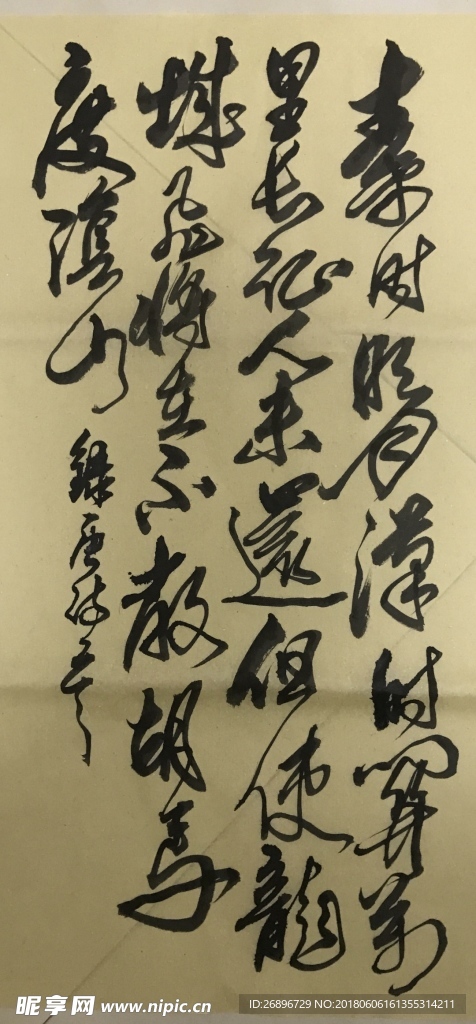 秦时明月漢时關萬
里長征人未還但使龍
城飛將在不教胡馬
度陰山
錄唐诗一首
昵享网 www.nipic.cn
ID:26896729 NO:20180606161355314211